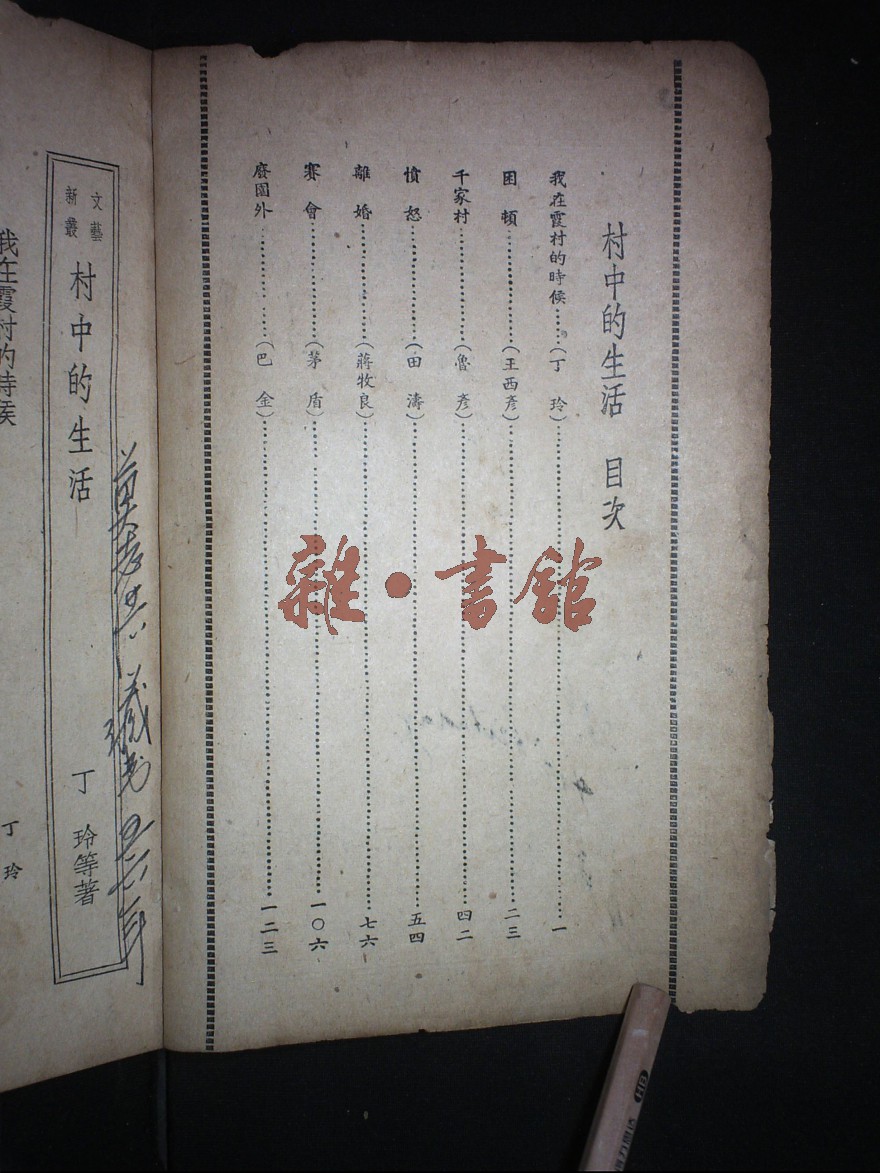 村中的生活 目次
我在霞村的時候……(丁 玲)……一
困 頓……(王西彥)……二三
千家村……(魯 彥)……四二
憤 怒……(田 濤)……五四
離 婚……(蔣牧良)……七六
賽 會……(茅 盾)……一〇六
廢園外……(巴 金)……一二三
雜·書館
文藝
新叢
村中的生活
丁 玲等著
我在霞村的時候
丁 玲
HB